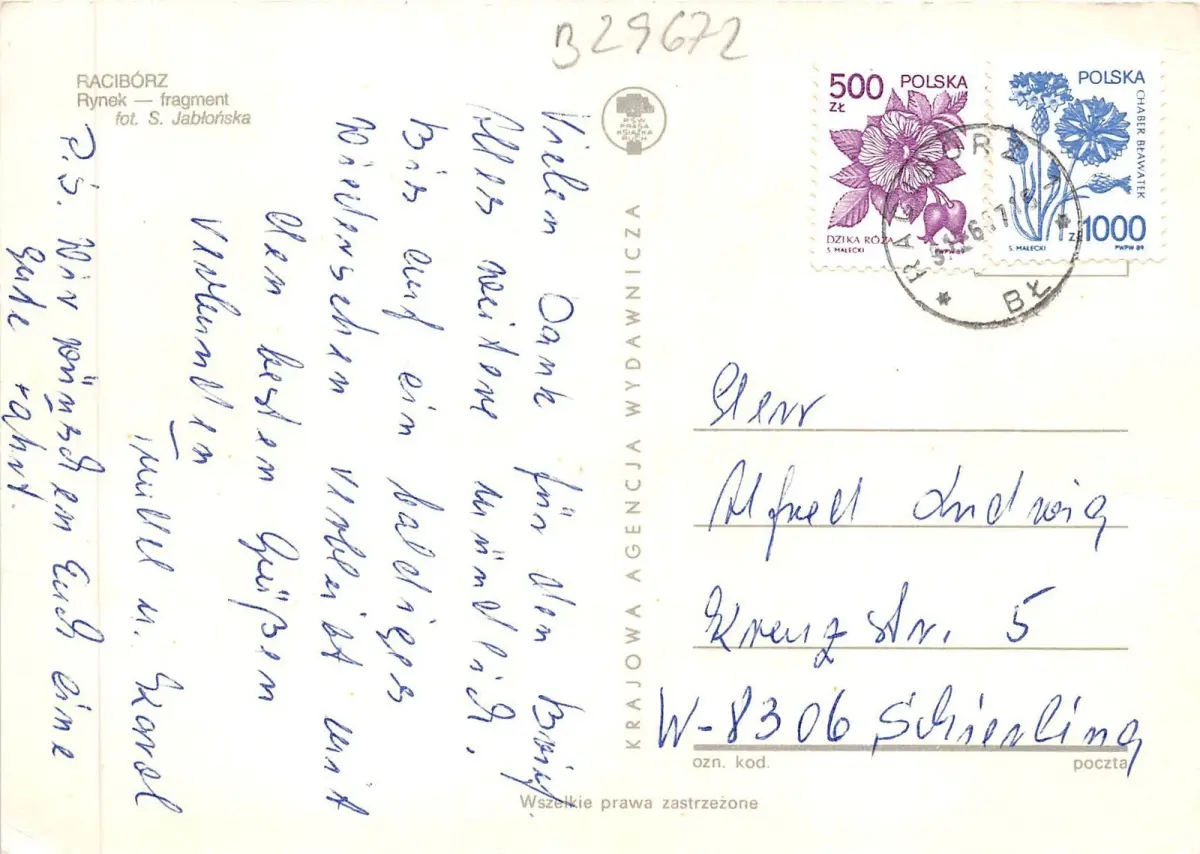 B29672
RACIBÓRZ
Rynek — fragment
fot. S. Jabłońska
PSW
PRASA
KSIĄŻKA
RUCH
500
ZŁ
POLSKA
DZIKA RÓŻA
S. MAŁECKI
POLSKA
CHABER BŁAWATEK
ZŁ 1000
S. MAŁECKI
PWPW 89
RACIBÓRZ 1
BŁ
Vielen Dank für den Brief
Alles weitere mündlich.
Bis auf ein baldiges
Wiedersehen verbleibt mit
den besten Grüßen
Verbunden
u. Karol
P.S. Wir wünschen Euch eine
gute Fahrt.
KRAJOWA AGENCJA WYDAWNICZA
Herr
Alfred Ludwig
Kreuzstr. 5
W-8306 Schierling
ozn. kod.
poczta
Wszelkie prawa zastrzeżone